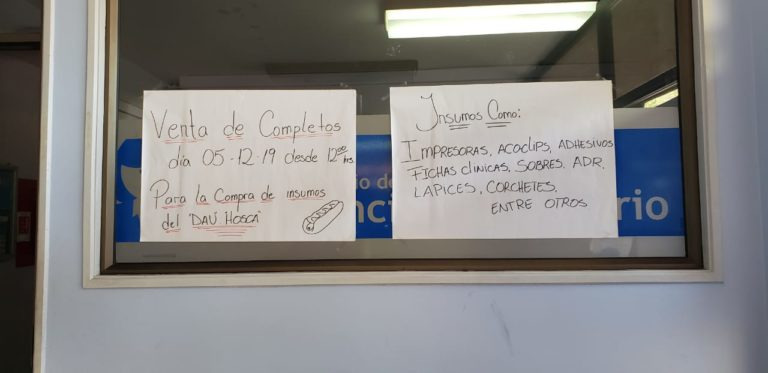 Venta de Completos
día 05-12-19 desde 12:00 hrs
Para la Compra de insumos
del "DAU HOSCA"
Insumos Como:
IMPRESORAS, ACOCLIPS, ADHESIVOS
FICHAS CLINICAS, SOBRES, ADR,
LAPICES, CORCHETES,
ENTRE OTROS
io de
nci
rio